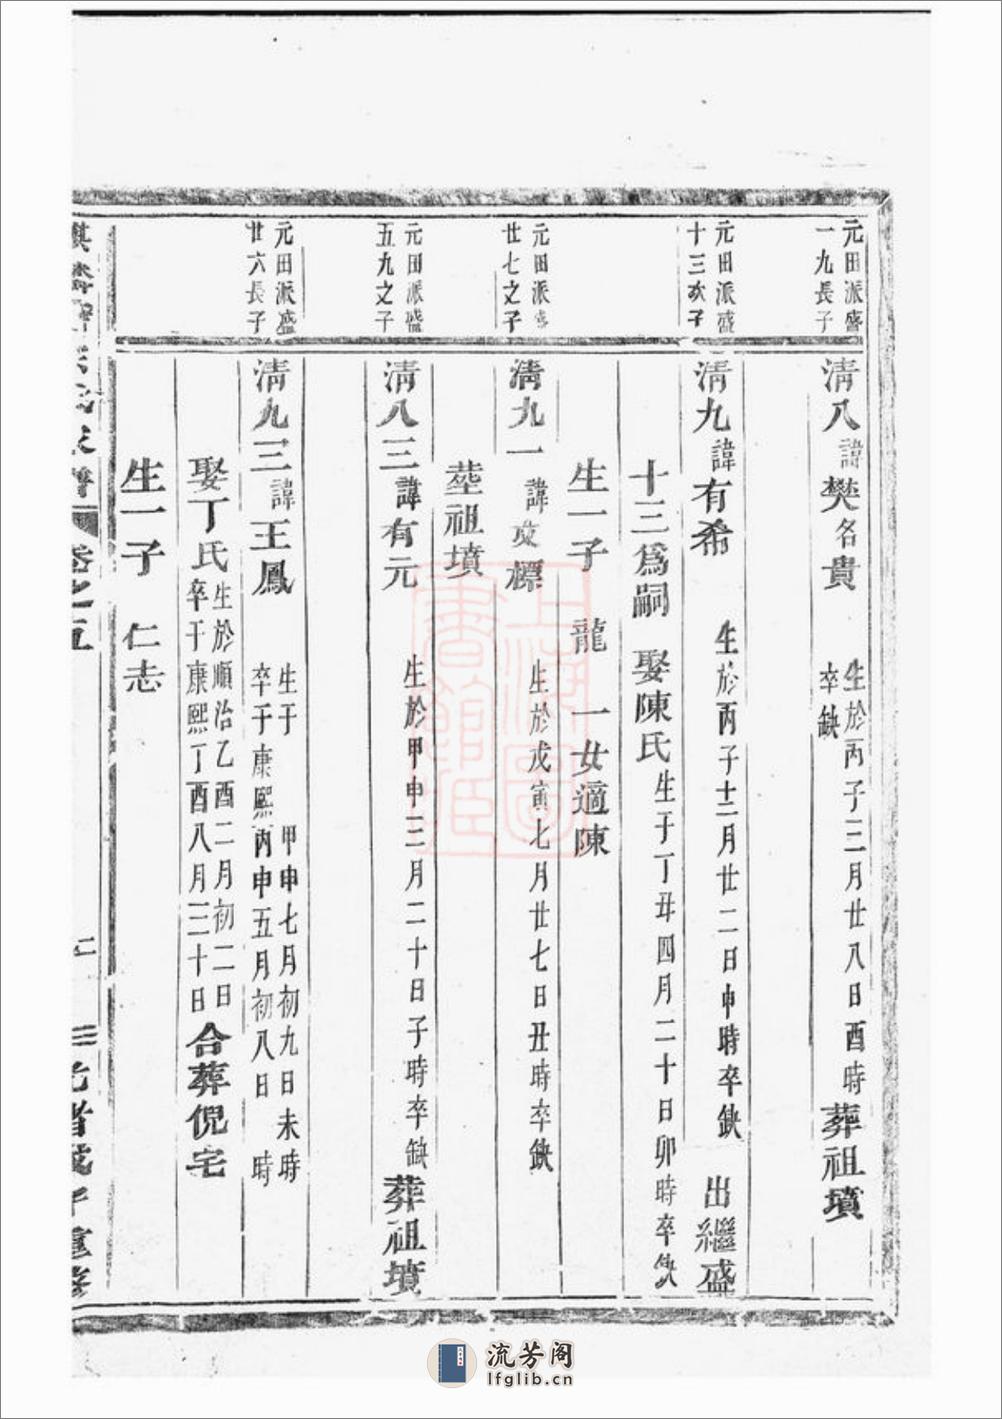 元田派盛
一九長子
清八諱樊名貴
生於丙子三月廿八日酉時
卒缺
葬祖墳
元田派盛
十三次子
清九諱有希
生於丙子十二月廿二日申時卒缺
出繼盛
十三爲嗣 娶陳氏
生于丁丑四月二十日卯時卒缺
生一子 龍 一女適陳
元田派
廿七之子
清九一諱文標
生於戊寅七月廿七日丑時卒缺
葬祖墳
元田派盛
五九之子
清八三諱有元
生於甲申三月二十日子時卒缺
葬祖墳
元田派盛
廿六長子
清九三諱王鳳
生于 甲申七月初九日未時
卒于康熙丙申五月初八日 時
娶丁氏
生於順治乙酉二月初二日
卒于康熙丁酉八月三十日
合葬倪宅
生一子 仁志
氏家譜
卷之五
重修
上海圖書館藏
流芳阁
lfglib.cn